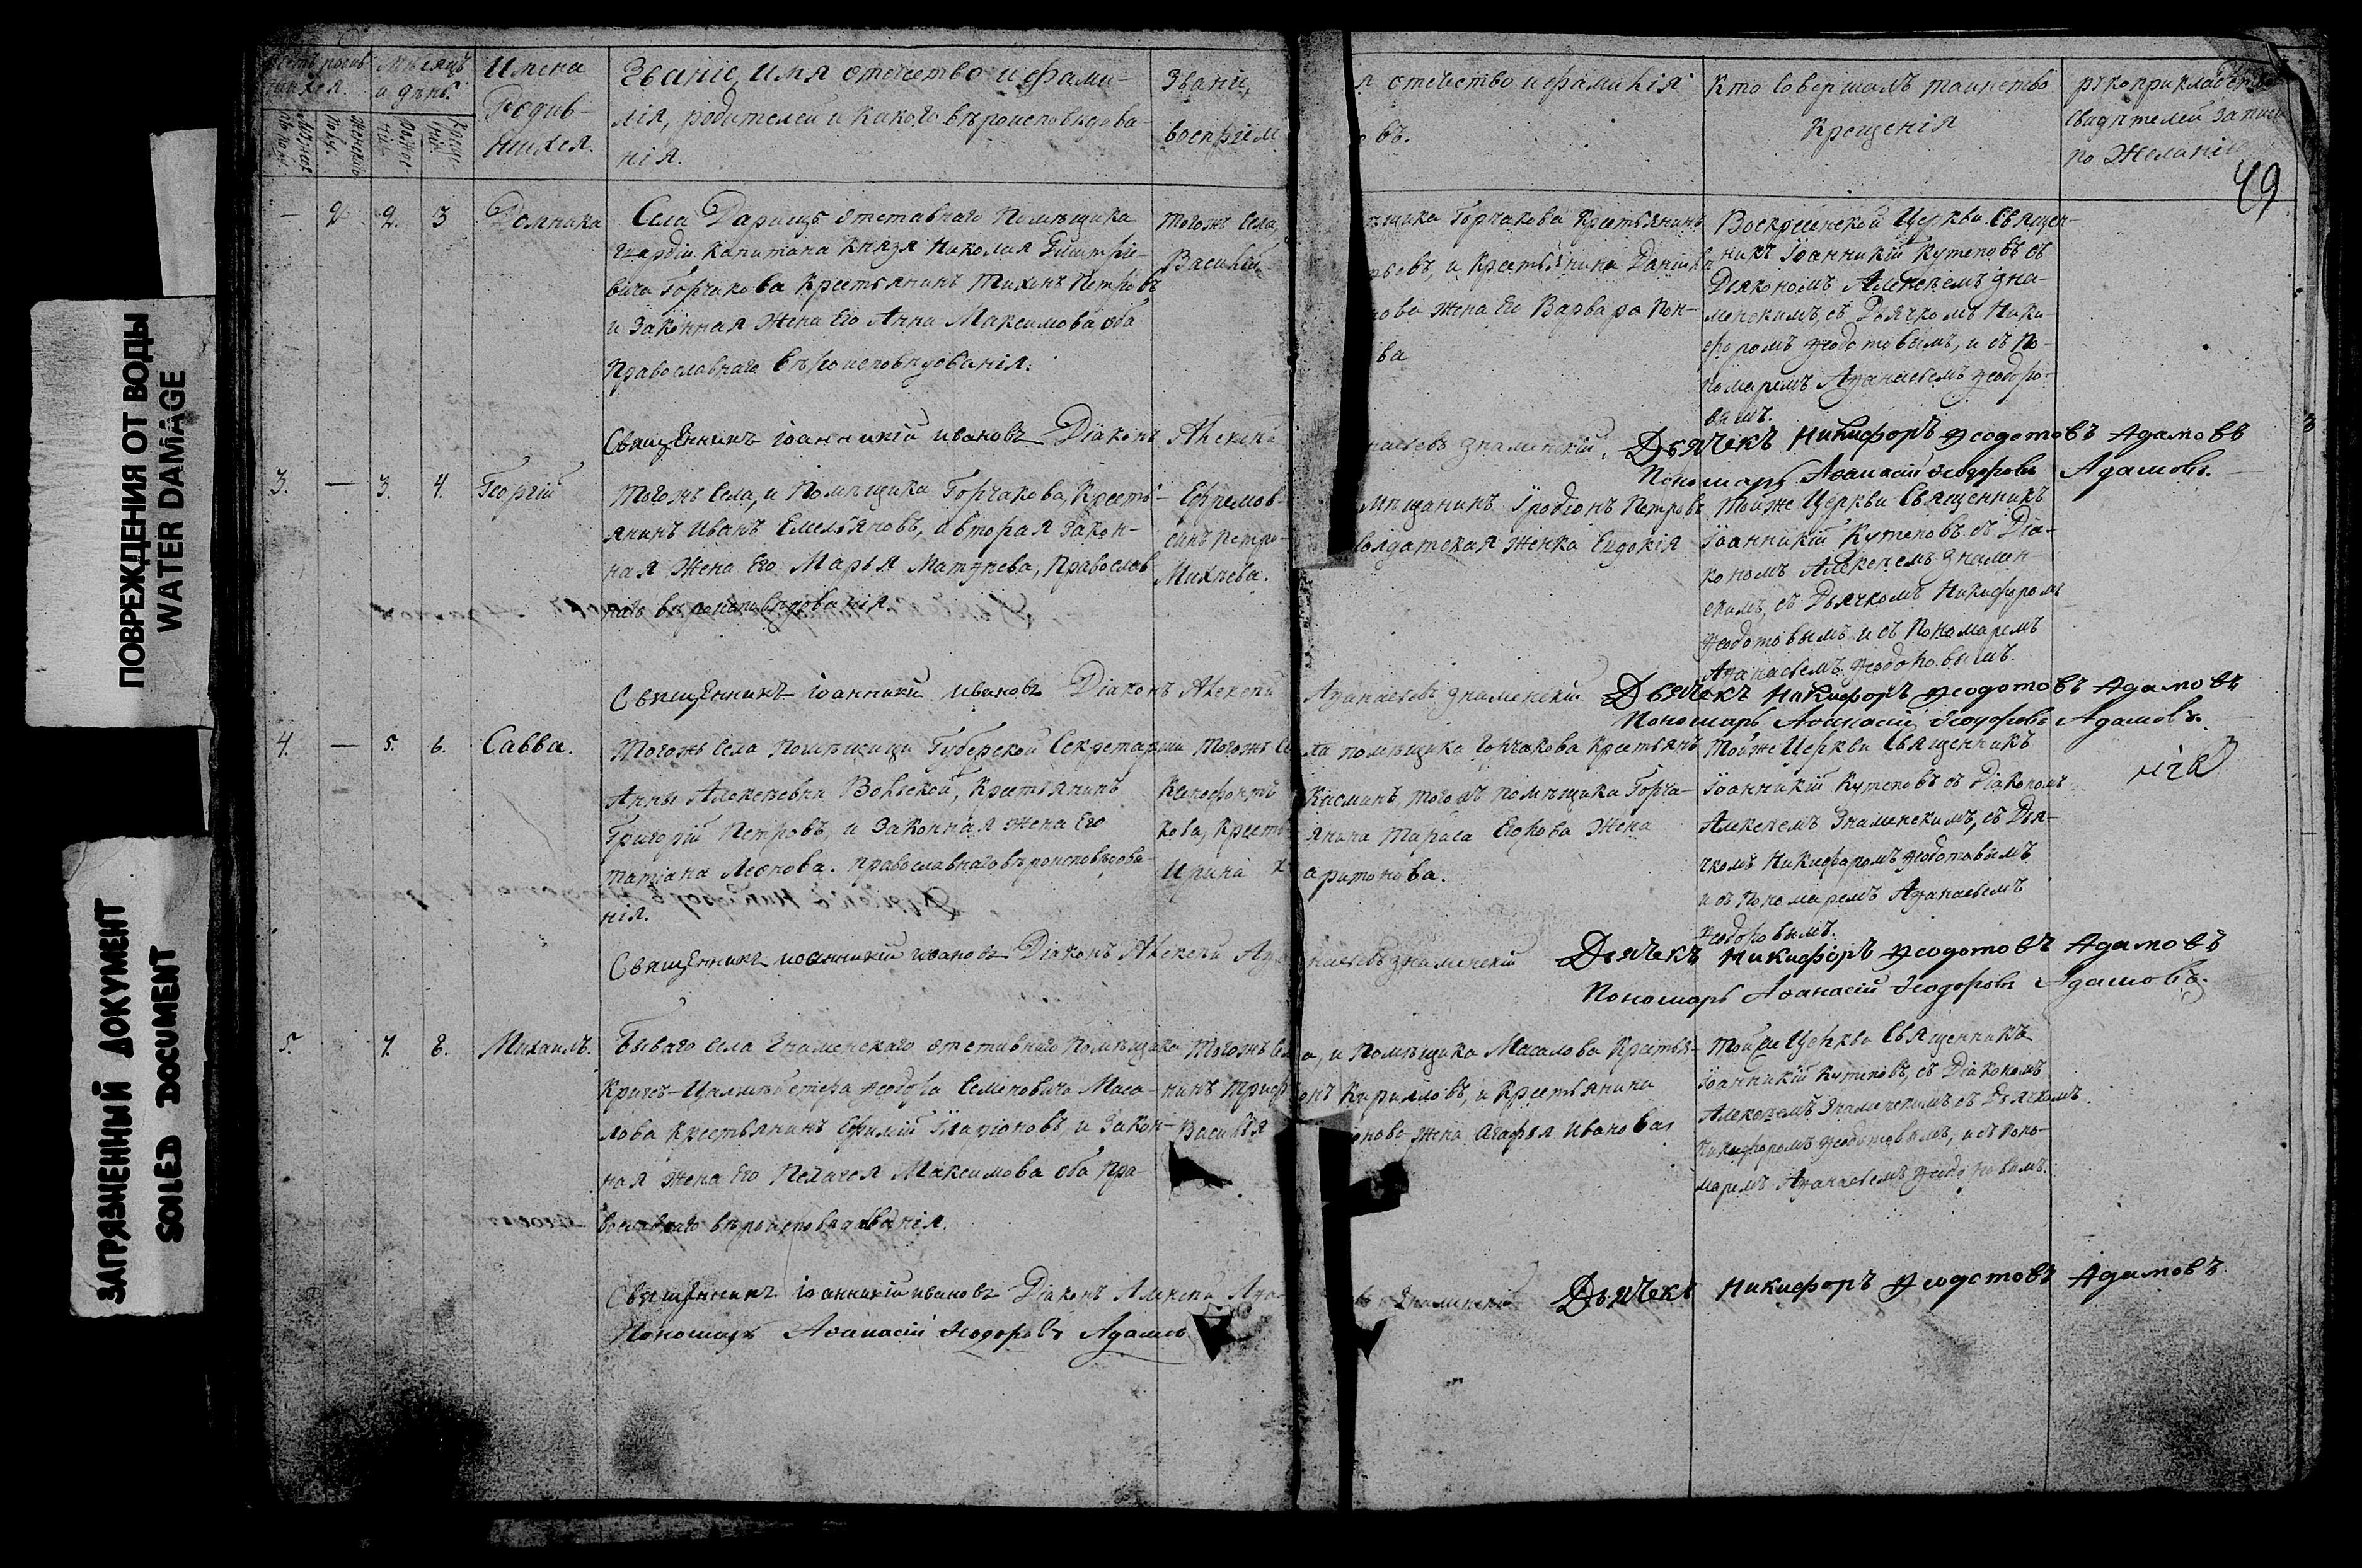 ПОВРЕЖДЕНИЯ ОТ ВОДЫ
WATER DAMAGE
ЗАГРЯЗНЕННЫЙ ДОКУМЕНТ
SOILED DOCUMENT
49
Имена
Родив-
шихся.
Званіе, имя отечество и фами-
лія, родителей и какого вѣроисповѣдова-
нія.
Званіе,
воспріем
отечество и фамилія
въ.
Кто совершалъ таинство
Крещенія
рукоприкладство
свидѣтелей записи
по желанію
— 2 2. 3 Домника
Села Дарищъ отставнаго Помѣщика
гвардіи Капитана Князя Николая Дмитріе-
вича Горчакова Крестьянинъ Тихонъ Петровъ
и законная жена Его Анна Максимова оба
Православнаго вѣроисповѣдованія.
тогожъ села,
Василій
Горчакова Крестьянинъ
и крестьянина Даніила
жена Его Варвара Кон-
ва
Воскресенской Церкви Священ-
никъ Іоанникій Кутеповъ съ
Діякономъ Алексѣемъ Зна-
менскимъ, съ Дьячкомъ Ники-
форомъ Ѳеодотовымъ, и съ По-
номаремъ Аѳанасьемъ Ѳеодоро-
вымъ.
Священникъ іоанникій ивановъ Діаконъ Алексей
знаменскій. Дьячекъ Никифоръ Ѳеодотовъ Адамовъ
Пономарь Аѳанасій Ѳеодоровъ Адамовъ.
3. — 3. 4. Георгій
Тогожъ села, и Помѣщика Горчакова, Кресть-
янинъ Иванъ Емельяновъ, и вторая закон-
ная жена Его Марья Матѳеева, Православ
наго вѣроисповѣдованія.
Ефремов-
Михѣева.
мѣщанинъ Іродіонъ Петровъ
солдатская женка Евдокія
Тойже Церкви Священникъ
Іоанникій Кутеповъ съ Діа-
кономъ Алексѣемъ Знамен-
скимъ, съ Дьячкомъ Никифоромъ
Ѳеодотовымъ и съ Пономаремъ
Аѳанасьемъ Ѳеодоровымъ.
Священникъ іоанникій ивановъ Діаконъ Алексей Аѳанасьевъ знаменскій Дьячекъ Никифоръ Ѳеодотовъ Адамовъ
Пономарь Аѳанасій Ѳеодоровъ Адамовъ.
4. — 5. 6. Савва.
Тогожъ села помѣщицы Губерской Секретарши
Анны Алексѣевны Вольской, Крестьянинъ
Григорій Петровъ, и законная жена Его
Татіана Леонова. православнаго вѣроисповѣдова-
нія.
тогожъ села помѣщика Горчакова крестьянъ
Ксенофонтъ Касминъ, тогожъ помѣщика Горча-
кова, крестьянина Тараса Егорова жена
Ирина Харитонова.
Тойже Церкви Священникъ
Іоанникій Кутеповъ съ Діакономъ
Алексѣемъ Знаменскимъ, съ Дья-
чкомъ Никифоромъ Ѳеодотовымъ
и съ Пономаремъ Аѳанасьемъ
Ѳеодоровымъ.
Священникъ иоанникій ивановъ Діаконъ Алексей Аѳанасьевъ знаменскій Дьячекъ Никифоръ Ѳеодотовъ Адамовъ
Пономарь Аѳанасій Ѳеодоровъ Адамовъ.
5. 7. 8. Михаилъ.
Бываго села Знаменскаго отставнаго Помѣщика
Кригсъ-Цалмейстера Ѳеодора Семеновича Маса-
лова Крестьянинъ Ефимій Иларіоновъ, и закон-
ная жена Его Пелагея Максимова оба Пра-
вославнаго вѣроисповѣдованія.
Тогожъ села, и Помѣщика Масалова Крестья-
нинъ Трифонъ Кирилловъ, и Крестьянина
Василья жена Агафья Иванова
Тойже Церкви Священникъ
Іоанникій Кутеповъ, съ Діакономъ
Алексѣемъ Знаменскимъ съ Дьячкомъ
Никифоромъ Ѳеодотовымъ, и съ Поно-
маремъ Аѳанасьемъ Ѳеодоровымъ.
Священникъ іоанникій ивановъ Діаконъ Алексей Знаменскій Дьячекъ Никифоръ Ѳеодотовъ Адамовъ
Пономарь Аѳанасій Ѳеодоровъ Адамов